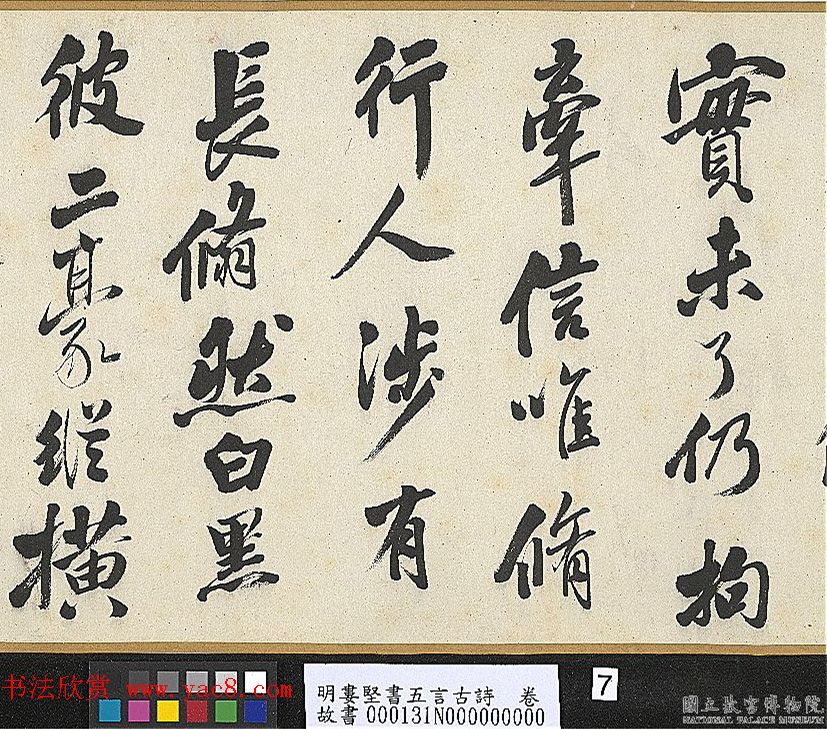 實未了仍拘
牽信唯脩
行人涉有
長脩然白黑
彼二豪縱橫
书法欣赏 www.yac8.com
明婁堅書五言古詩 卷
故書000131N000000000
7
國立故宮博物院
NATIONAL PALACE MUSEUM